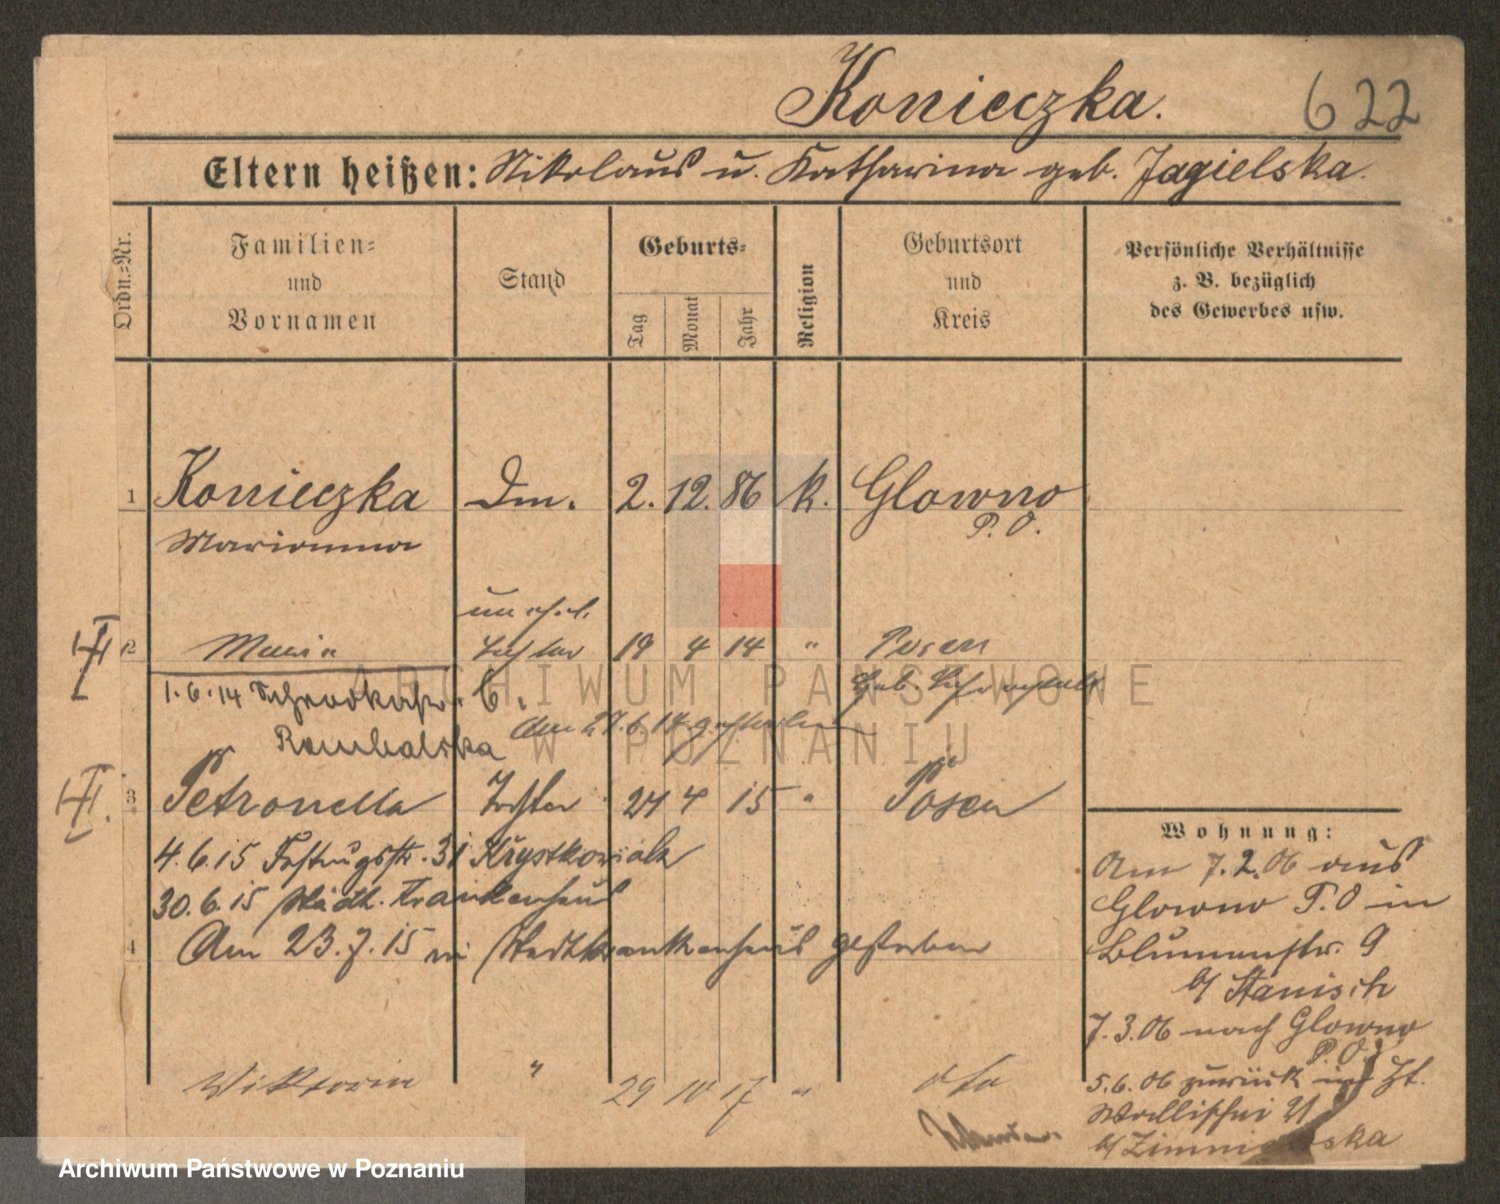 Konieczka. 622
Eltern heißen: Nikolaus u. Katharina geb. Jagielska.
Ordn.-Nr.
Familien-
und
Vornamen
Stand
Geburts-
Tag
Monat
Jahr
Religion
Geburtsort
und
Kreis
Persönliche Verhältnisse
z. B. bezüglich
des Gewerbes usw.
1 Konieczka Dm. 2. 12. 86 k. Glowno
Marianna P. O.
unehel.
2 Maria Tochter 19 4 14 " Posen
1.6.14 6.
Am 27.6.14 gestorben
Rombalska
3 Petronella Tochter 24 4 15 " Posen
4.6.15 Festungsstr. 31 Krystkowiak
30.6.15 Städt. Krankenhaus
4 Am 23.7.15 im Stadtkrankenhaus gestorben
Wiktoria " 29 10 17 " dto
Wohnung:
Am 7.2.06 aus
Glowno P.O in
Blumenstr. 9
b/ Stanisch
7.3.06 nach Glowno
P.O.
5.6.06 zurück
Wallischei
b/
ARCHIWUM PAŃSTWOWE
W POZNANIU
Archiwum Państwowe w Poznaniu